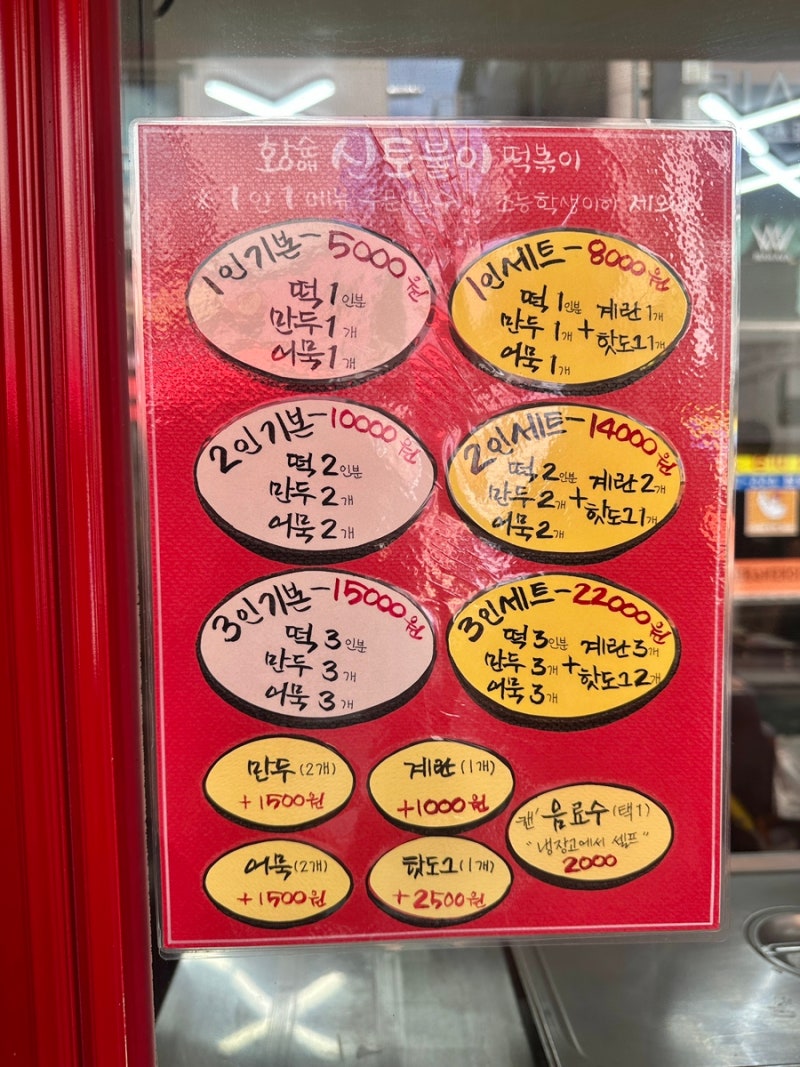 황소애 신토불이 떡볶이
※ 1인 1메뉴 주문 초등학생이하 제외
1인기본-5000원
떡 1인분
만두 1개
어묵 1개
1인세트-8000원
떡 1인분
만두 1개
어묵 1개
+
계란 1개
핫도그 1개
2인기본-10000원
떡 2인분
만두 2개
어묵 2개
2인세트-14000원
떡 2인분
만두 2개
어묵 2개
+
계란 2개
핫도그 1개
3인기본-15000원
떡 3인분
만두 3개
어묵 3개
3인세트-22000원
떡 3인분
만두 3개
어묵 3개
+
계란 3개
핫도그 2개
만두 (2개)
+1500원
계란 (1개)
+1000원
어묵 (2개)
+1500원
핫도그 (1개)
+2500원
"캔" 음료수 (택1)
"냉장고에서 셀프"
2000